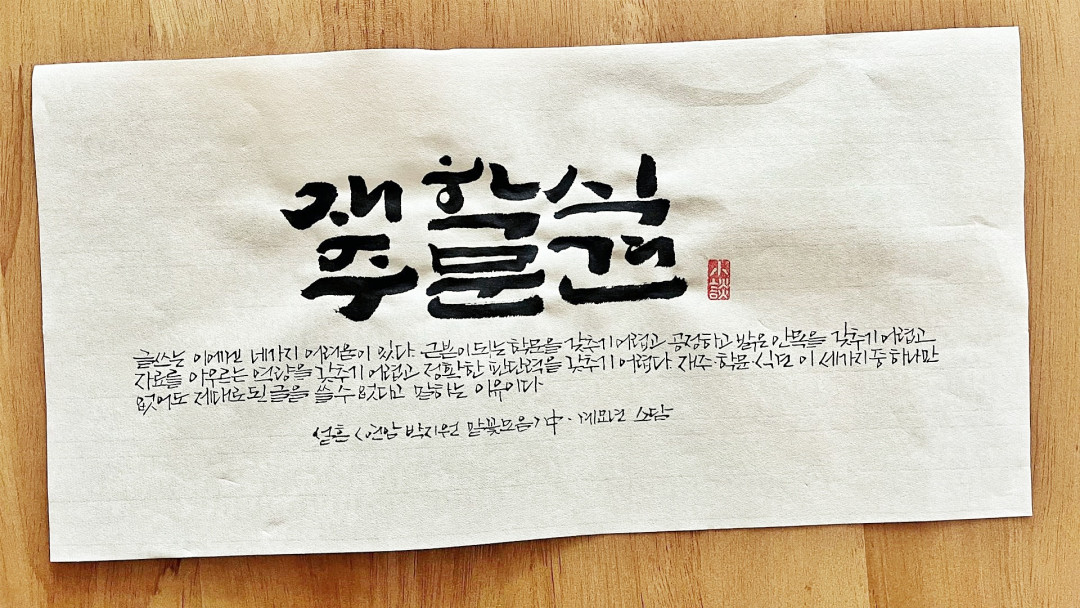 재주 학문 식견
小談
글쓰는 이에겐 네가지 어려움이 있다. 근본이 되는 학문을 갖추기 어렵고 공정하고 밝은 안목을 갖추기 어렵고
자료를 아우르는 역량을 갖추기 어렵고 정확한 판단력을 갖추기 어렵다. 재주·학문·식견 이 세가지 중 하나만
없어도 제대로 된 글을 쓸 수 없다고 말하는 이유이다.
설흔 <연암 박지원 말꽃모음> 中 · 계묘년 소담